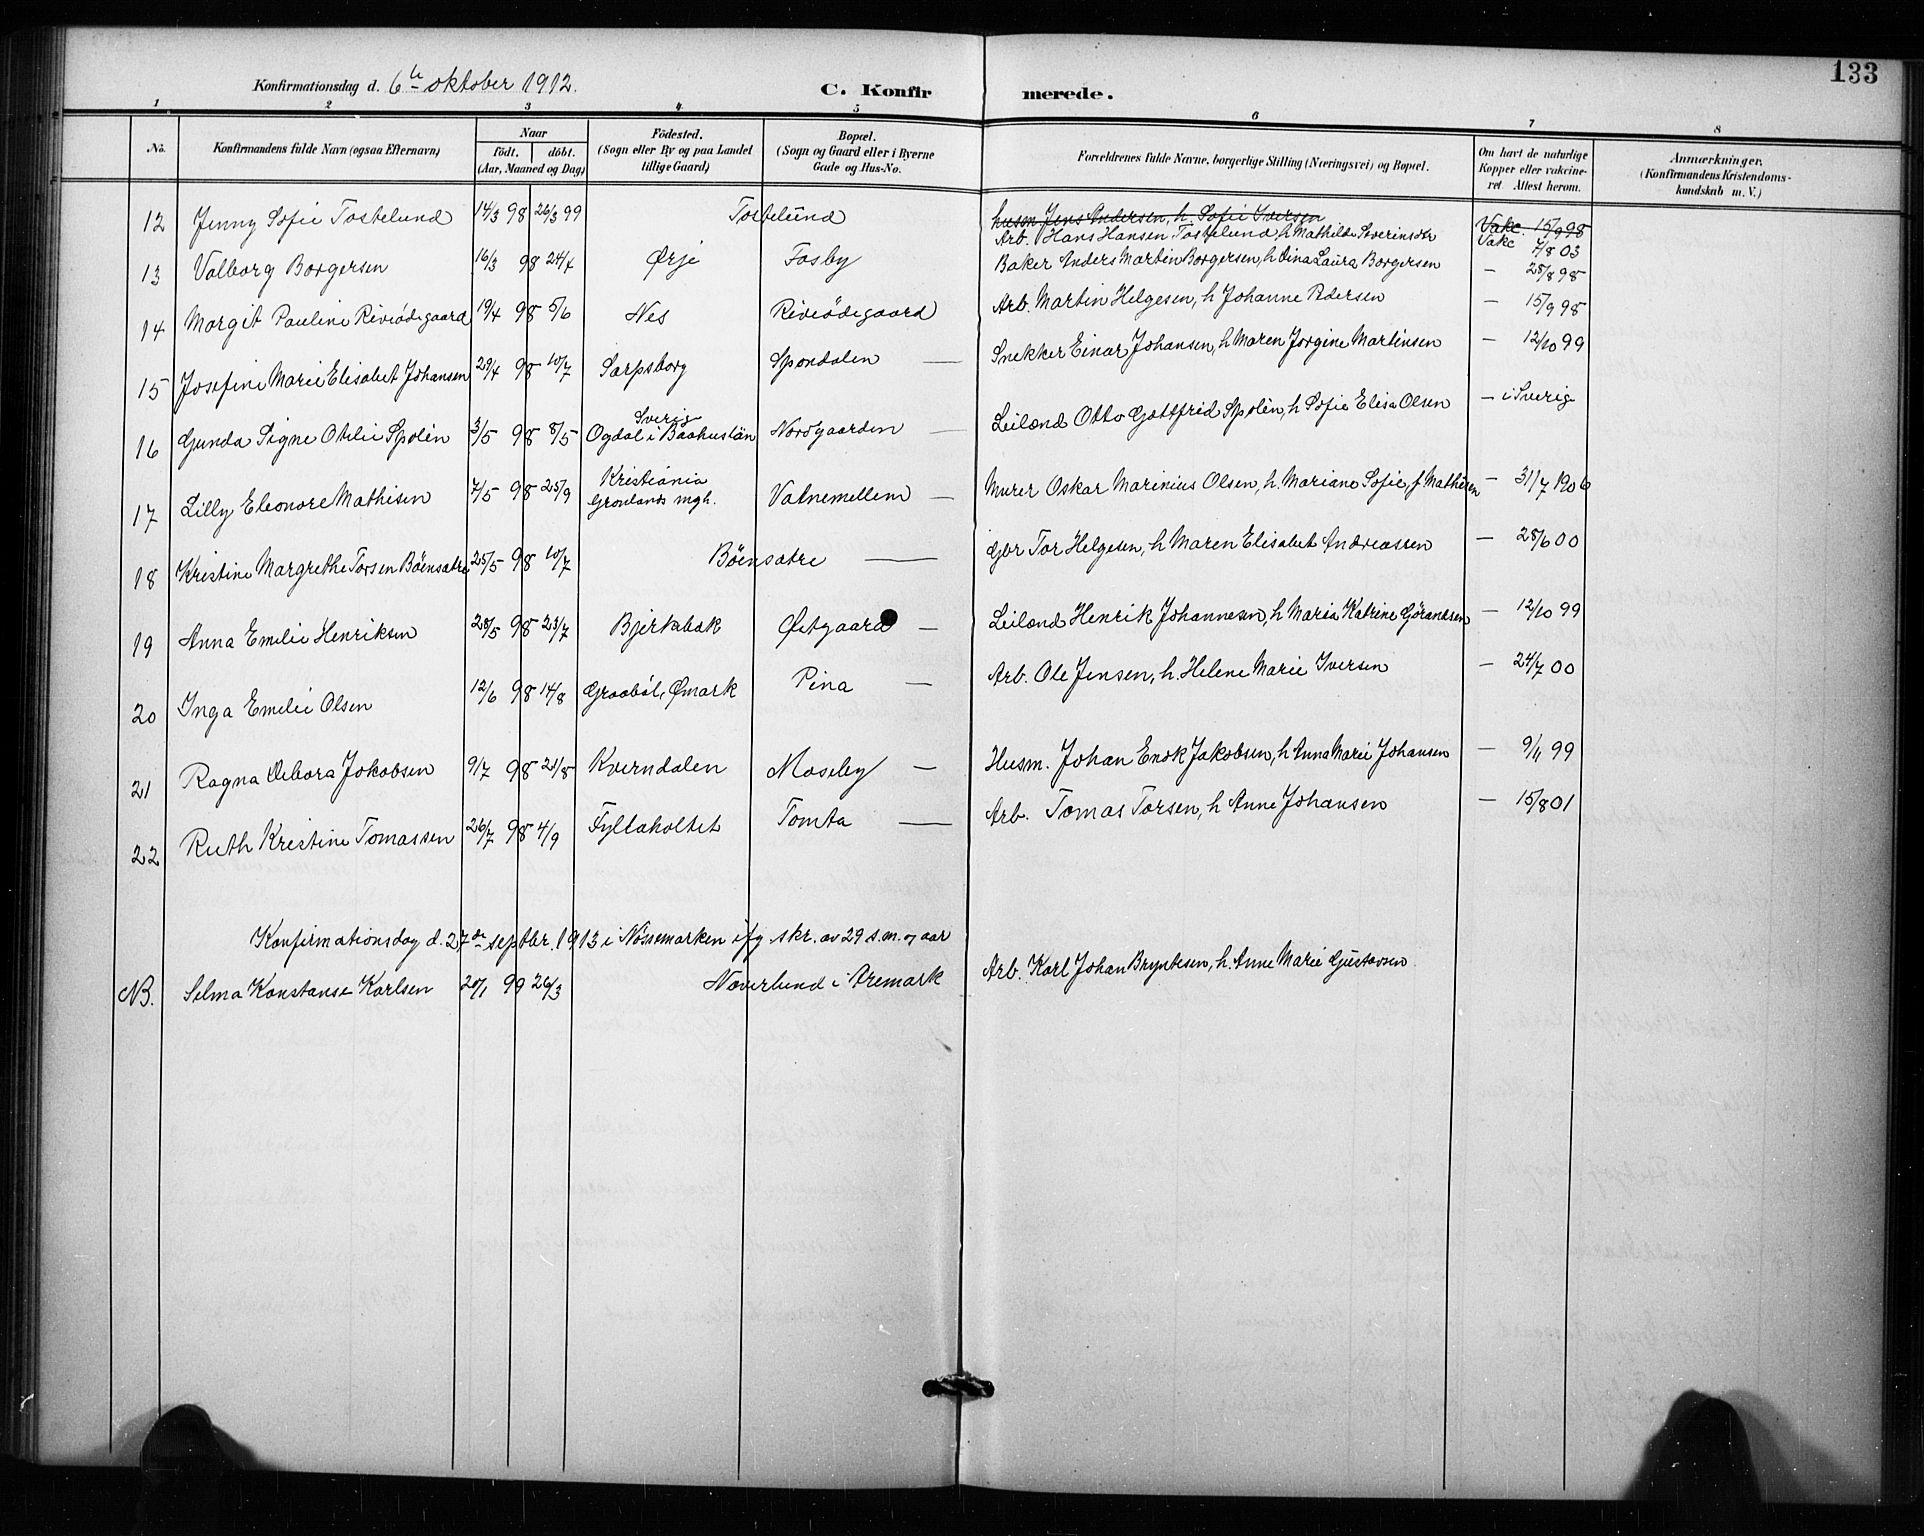 133
Konfirmationsdag d. 6te oktober 1912.
C. Konfirmerede.
1 2 3 4 5 6 7 8
No. Konfirmandens fulde Navn (ogsaa Efternavn) Naar födt. döbt. (Aar, Maaned og Dag) Födested. (Sogn eller By og paa Landet tillige Gaard) Bopæl. (Sogn og Gaard eller i Byerne Gade og Hus-No. Forældrenes fulde Navne, borgerlige Stilling (Næringsvei) og Bopæl. Om havt de naturlige Kopper eller vakcineret Attest herom. Anmærkninger. (Konfirmandens Kristendomskundskab m. V.)
husm Jens Andersen, h. Sofie Iversen Vakc. 15/9 98
12 Jenny Sofie Tostelund 14/3 98 26/3 99 Tostelund Arb. Hans Hansen Tostelund, h Mathilde Severinsdtr Vakc 7/8 03
13 Valborg Borgersen 16/3 98 24/7 Ørje Fosby Baker Anders Martin Borgersen, h Dina Laura Borgersen — 28/8 98
14 Margit Pauline Riviødegaard 19/4 98 5/6 Nes Riviødegaard Arb. Martin Helgesen, h Johanne Pedersen — 15/9 98
15 Josefine Marie Elisabet Johansen 29/4 98 10/7 Sarpsborg Spondalen — Snekker Einar Johansen, h Maren Jorgine Martinsen — 12/10 99
16 Gunda Signe Otelie Spolén 3/5 98 8/5 Sverig Ogdal i Baahuslän Nordgaarden — Leilænd Otto Gottfrid Spolén, h Sofie Elisa Olsen — i Sverig
17 Lilly Eleonore Mathisen 7/5 98 25/9 Kristiania Grønlands mgh. Vatnemellem — Murer Oskar Marinius Olsen, h. Mariane Sofie f Mathisen — 31/7 1906
18 Kristine Margrethe Torsen Bøensætre 25/5 98 10/7 Bøensætre — Gbr Tor Helgesen, h Maren Elisabet Andreassen — 28/6 00
19 Anna Emilie Henriksen 28/5 98 23/7 Bjerkebæk Østgaard — Leilænd Henrik Johannesen, h Maria Katrine Göransen — 12/10 99
20 Inga Emelie Olsen 12/6 98 14/8 Graabøl, Ømark Pina — Arb. Ole Jensen, h. Helene Marie Iversen — 24/7 00
21 Ragna Debora Jakobsen 9/7 98 21/8 Kverndalen Moseby — Husm. Johan Enok Jakobsen, h Anna Marie Johansen — 9/11 99
22 Ruth Kristine Tomassen 26/7 98 4/9 Fyllaholtet Tomta — Arb. Tomas Torsen, h Anne Johansen — 15/8 01
Konfirmationsdag d. 27de septbr. 1913 i Nössemarken ifg skr. av 29 s.m. og aar
NB. Selma Konstanse Karlsen 20/1 99 26/3 Noverlund i Aremark Arb. Karl Johan Bryntesen, h. Anne Marie Gustavsen